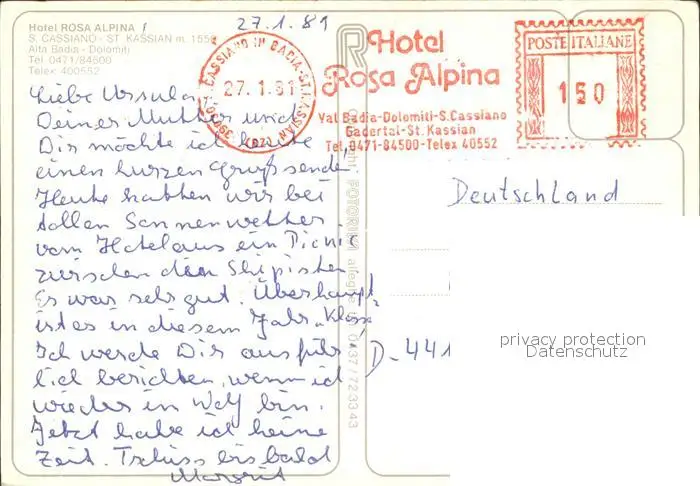 27.1.81
Hotel ROSA ALPINA
S. CASSIANO - ST. KASSIAN m. 155
Alta Badia - Dolomiti
Tel. 0471/84500
Telex 400552
CASSIANO IN BADIA - ST. KASSIAN
27.1.81
(BZ)
Hotel
Rosa Alpina
Val Badia-Dolomiti-S.Cassiano
Gadertal-St. Kassian
Tel. 0471-84500-Telex 40552
POSTE ITALIANE
150
Liebe Ursula,
Deiner Mutter und
Dir möchte ich heute
einen kurzen Gruß senden
Heute hatten wir bei
tollen Sonnenwetter
vom Hotel aus ein Picnic
zwischen den Skipisten
Es war sehr gut. Überhaupt
ist es in diesem Jahr „Klasse
Ich werde Dir ausführ
lich berichten, wenn ich
wieder in Wolf bin.
Jetzt habe ich keine
Zeit. Tschüss bis bald
Margrit
Deutschland
D-441
FOTORIVA alleghe tel. 0437/723343
privacy protection
Datenschutz